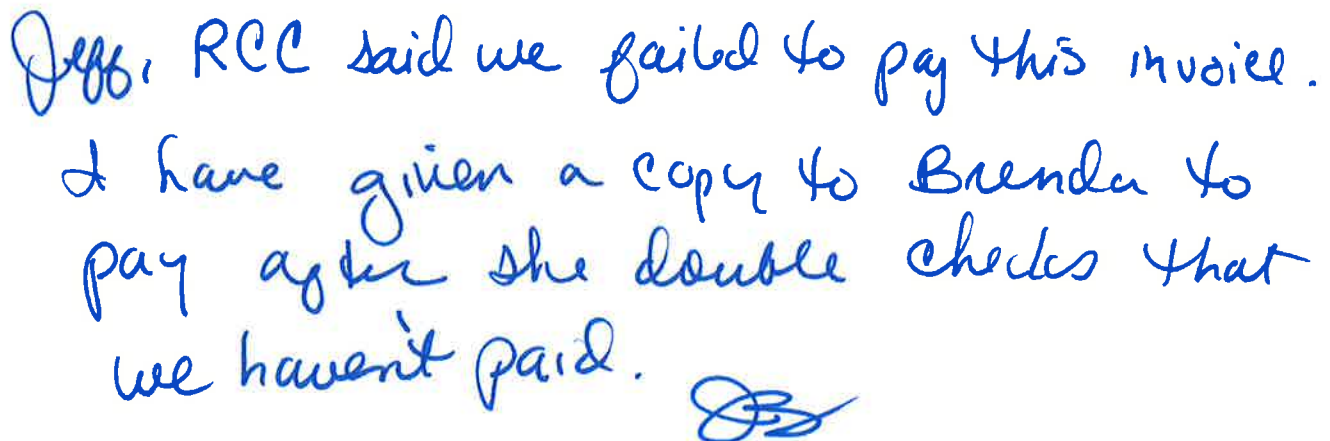 Jeff, RCC said we failed to pay this invoice.
I have given a copy to Brenda to
pay after she double checks that
we haven't paid.
JB